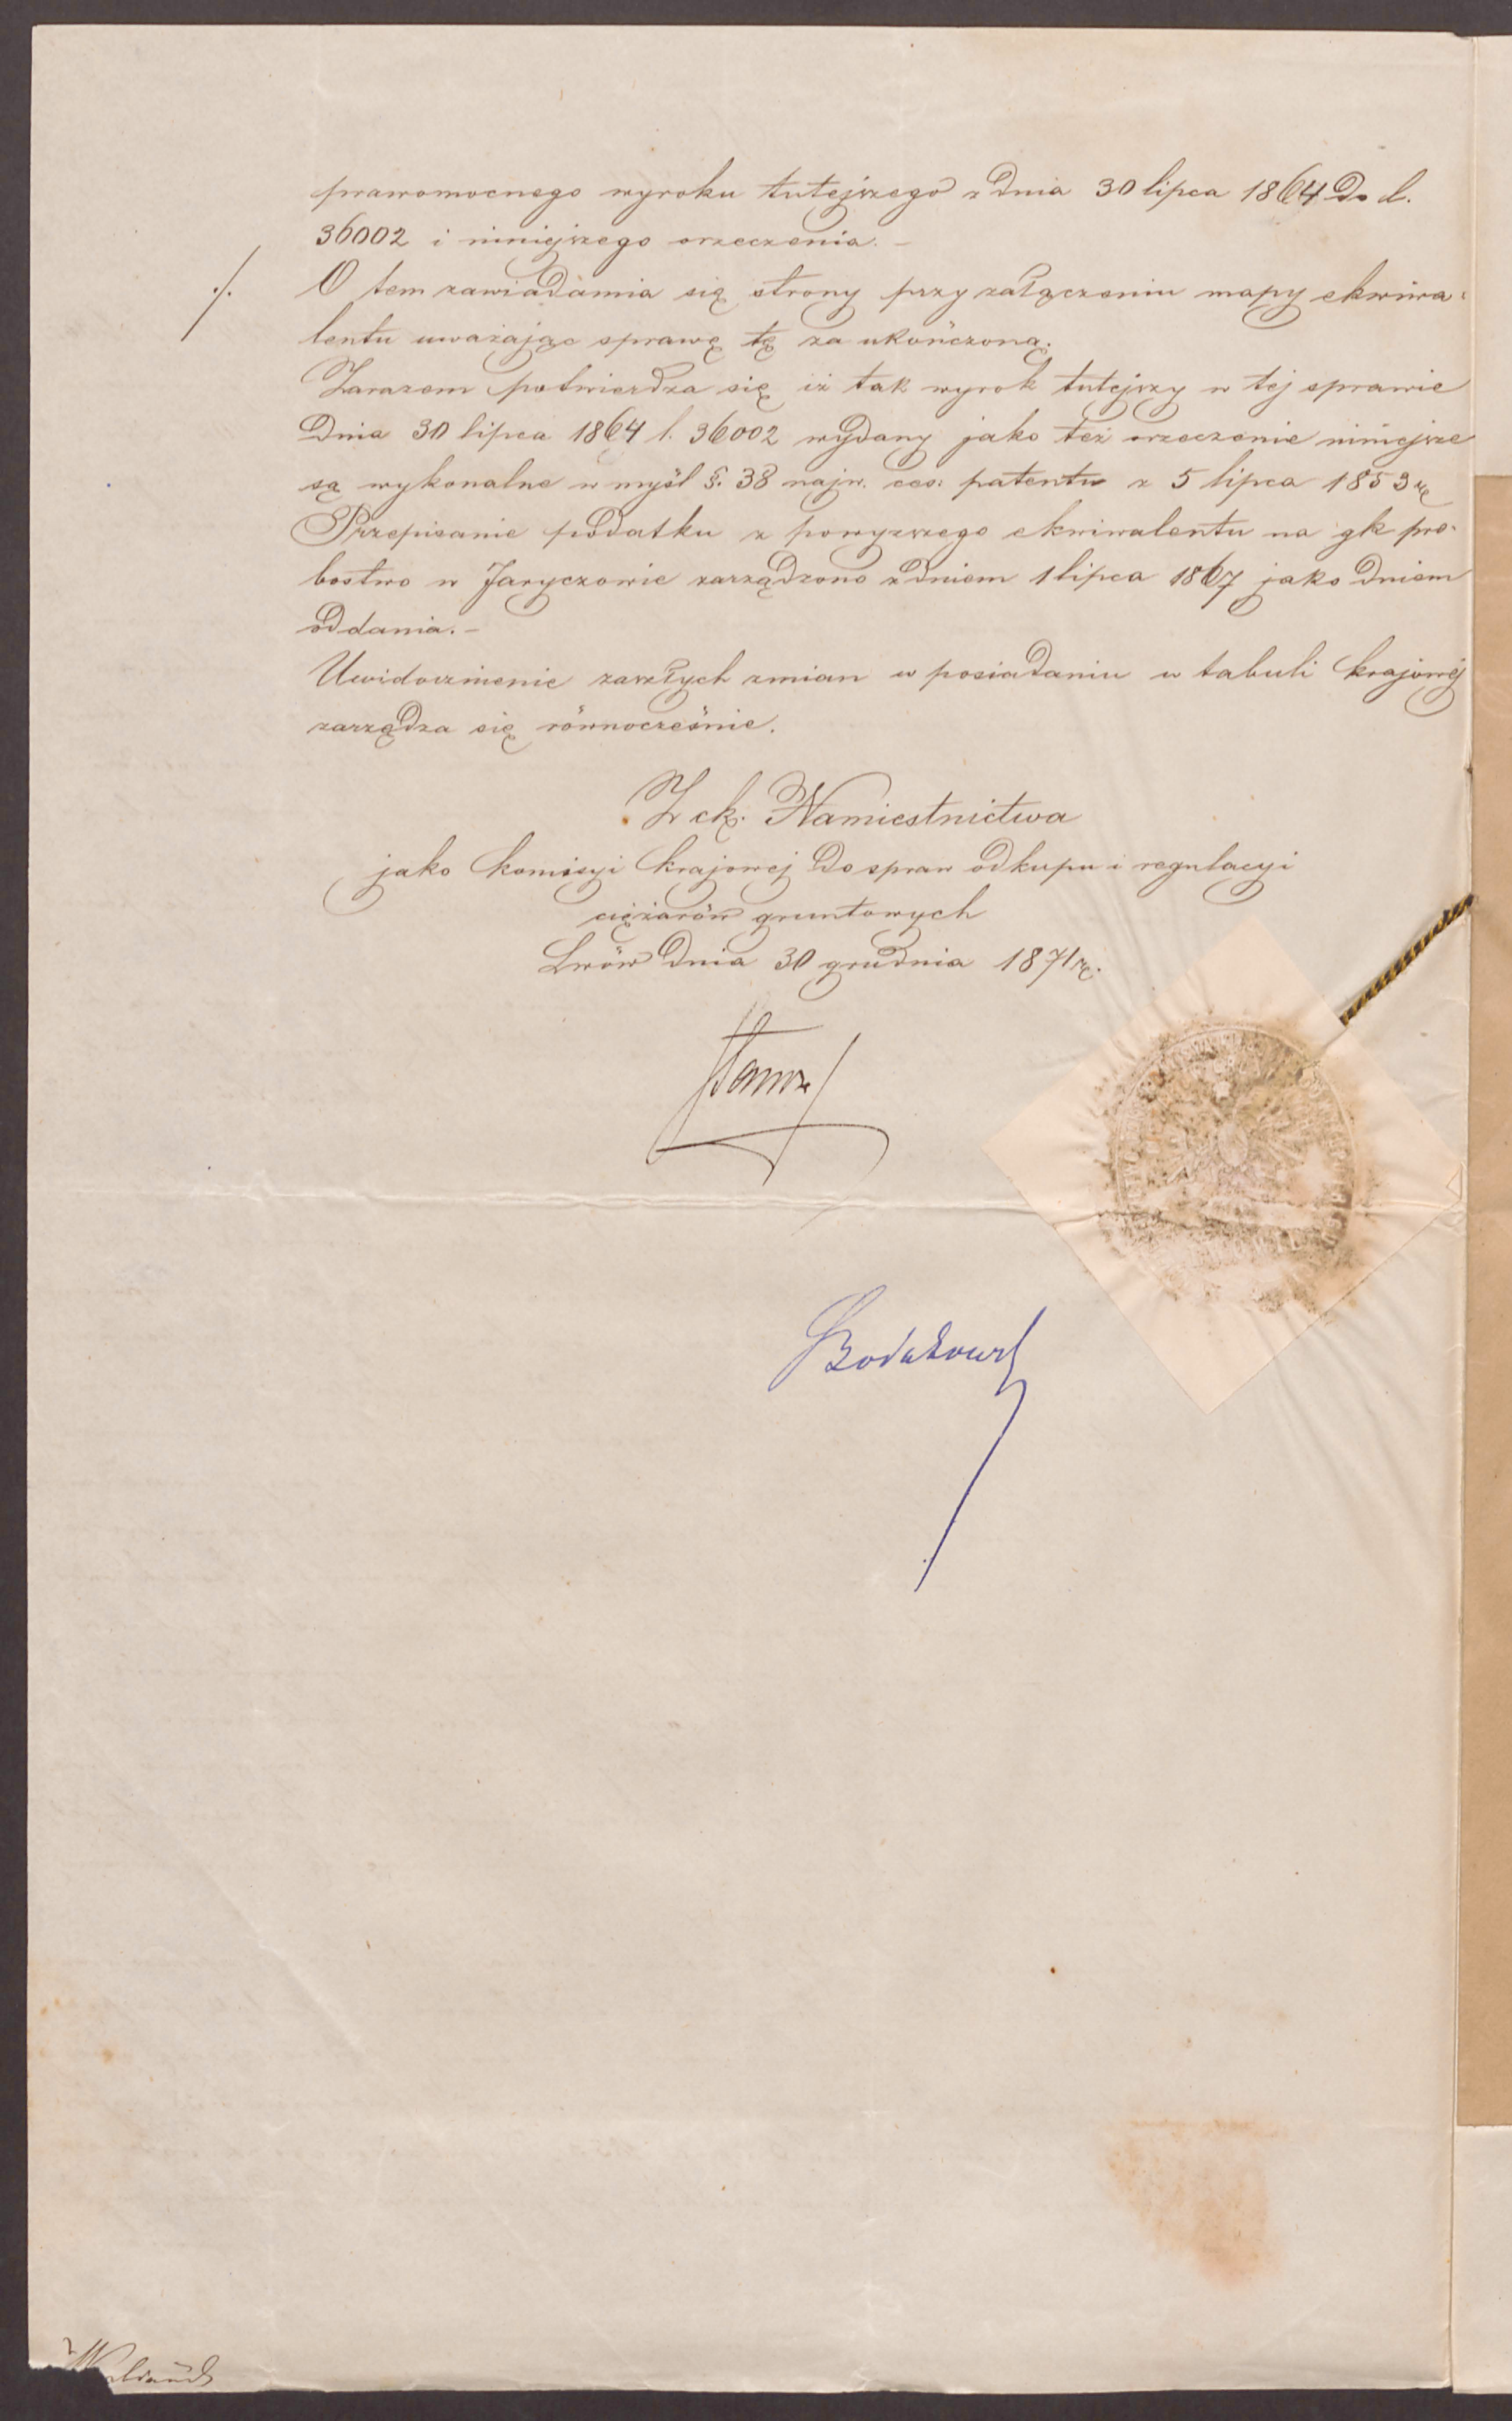 prawomocnego wyroku tutejszego z dnia 30 lipca 1864 do l.
36002 i niniejszego orzeczenia. –
./. O tem zawiadamia się strony przy załączeniu mapy ekwiwa=
lentu uważając sprawę tę za ukończoną.
Zarazem potwierdza się iż tak wyrok tutejszy w tej sprawie
dnia 30 lipca 1864 l. 36002 wydany jako też orzeczenie niniejsze
są wykonalne w myśl §. 38 najw. ces. patentu z 5 lipca 1853 r.
Przepisanie podatku z powyższego ekwiwalentu na gk pro=
bostwo w Jaryczowie zarządzono z dniem 1 lipca 1867 jako dniem
oddania. –
Uwidocznienie zaszłych zmian w posiadaniu w tabuli krajowej
zarządza się równocześnie.
Z ck. Namiestnictwa
jako komisyi krajowej do spraw odkupu i regulacyi
ciężarów gruntowych
Lwów dnia 30 grudnia 1871 r.